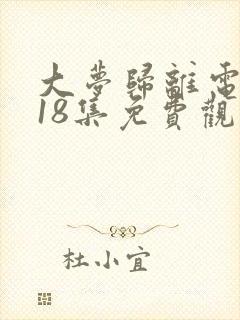 大夢歸離電
18集免費觀
杜小宜